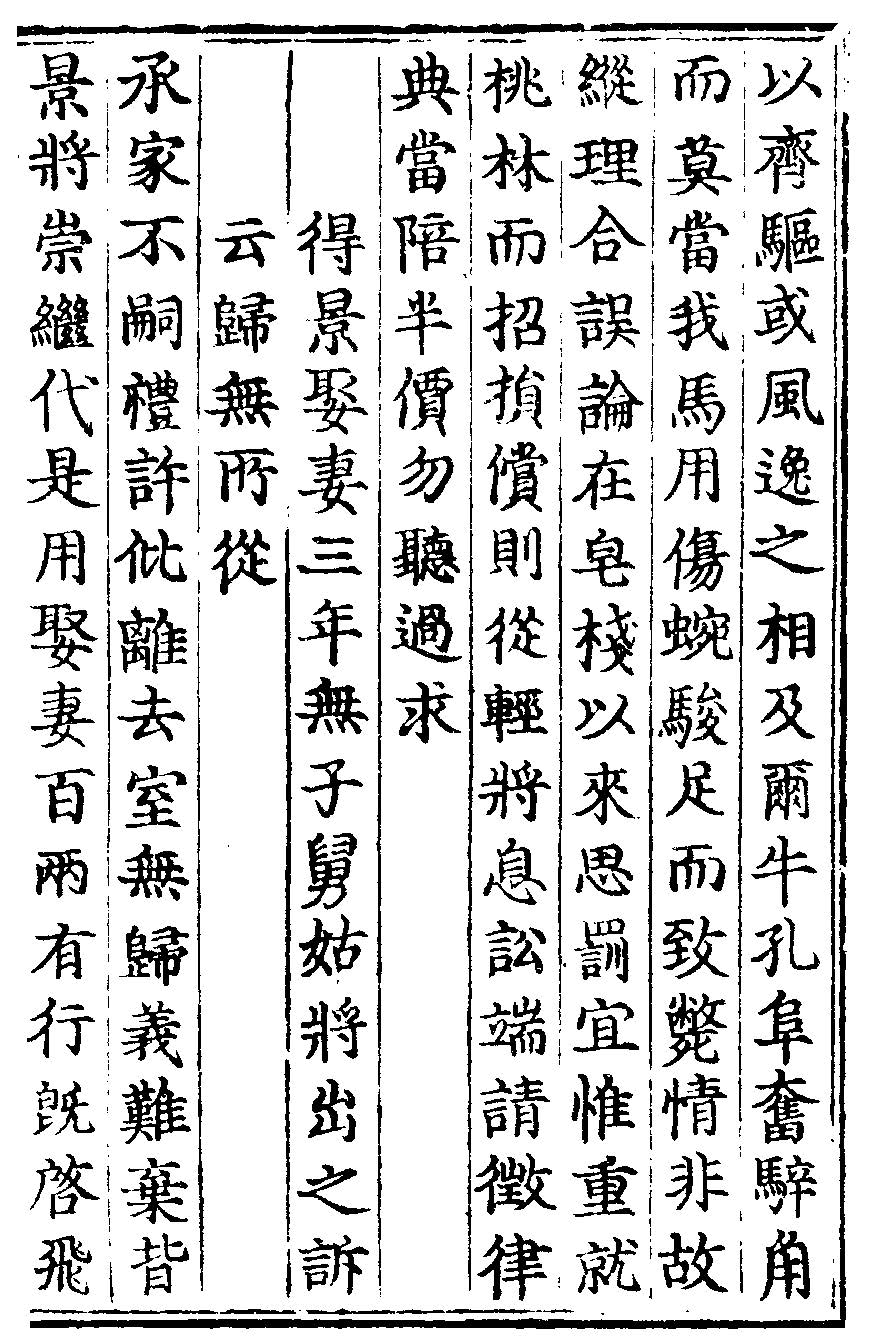 以齊驅或風逸之相及爾牛孔阜奮騂角
而莫當我馬用傷踠駿足而致斃情非故
縱理合誤論在皂棧以來思罰宜惟重就
桃林而招損償則從輕將息訟端請徵律
典當陪半價勿聽過求
得景娶妻三年無子舅姑將出之訴
云歸無所從
承家不嗣禮許仳離去室無歸義難棄背
景將崇繼代是用娶妻百兩有行旣啓飛